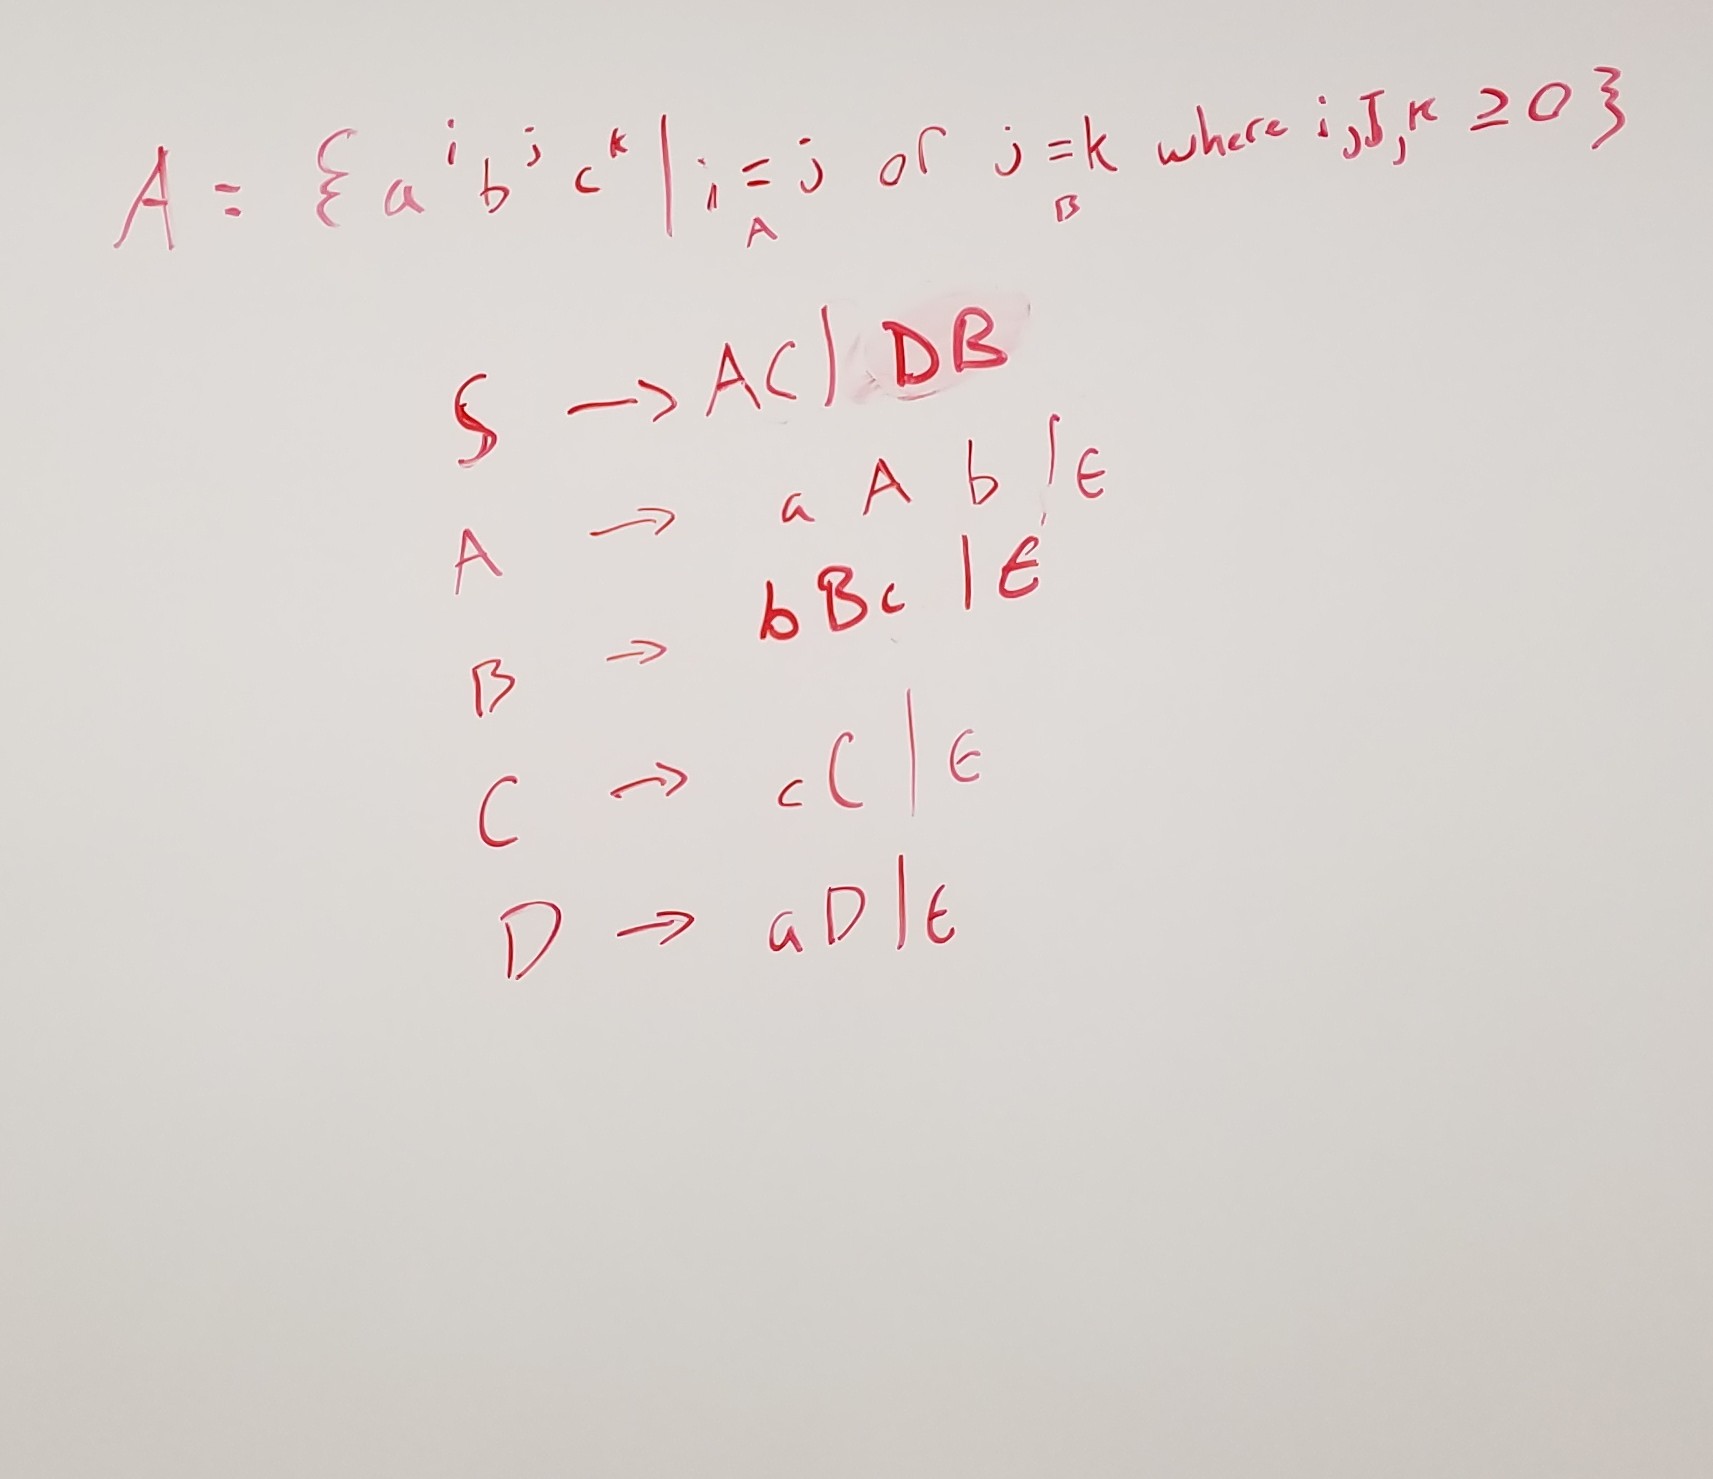 A = { aⁱ bʲ cᵏ | i = j or j = k where i, J, K ≥ 0 }
A B
S → AC | DB
A → a A b | ε
B → b B c | ε
C → c C | ε
D → a D | ε